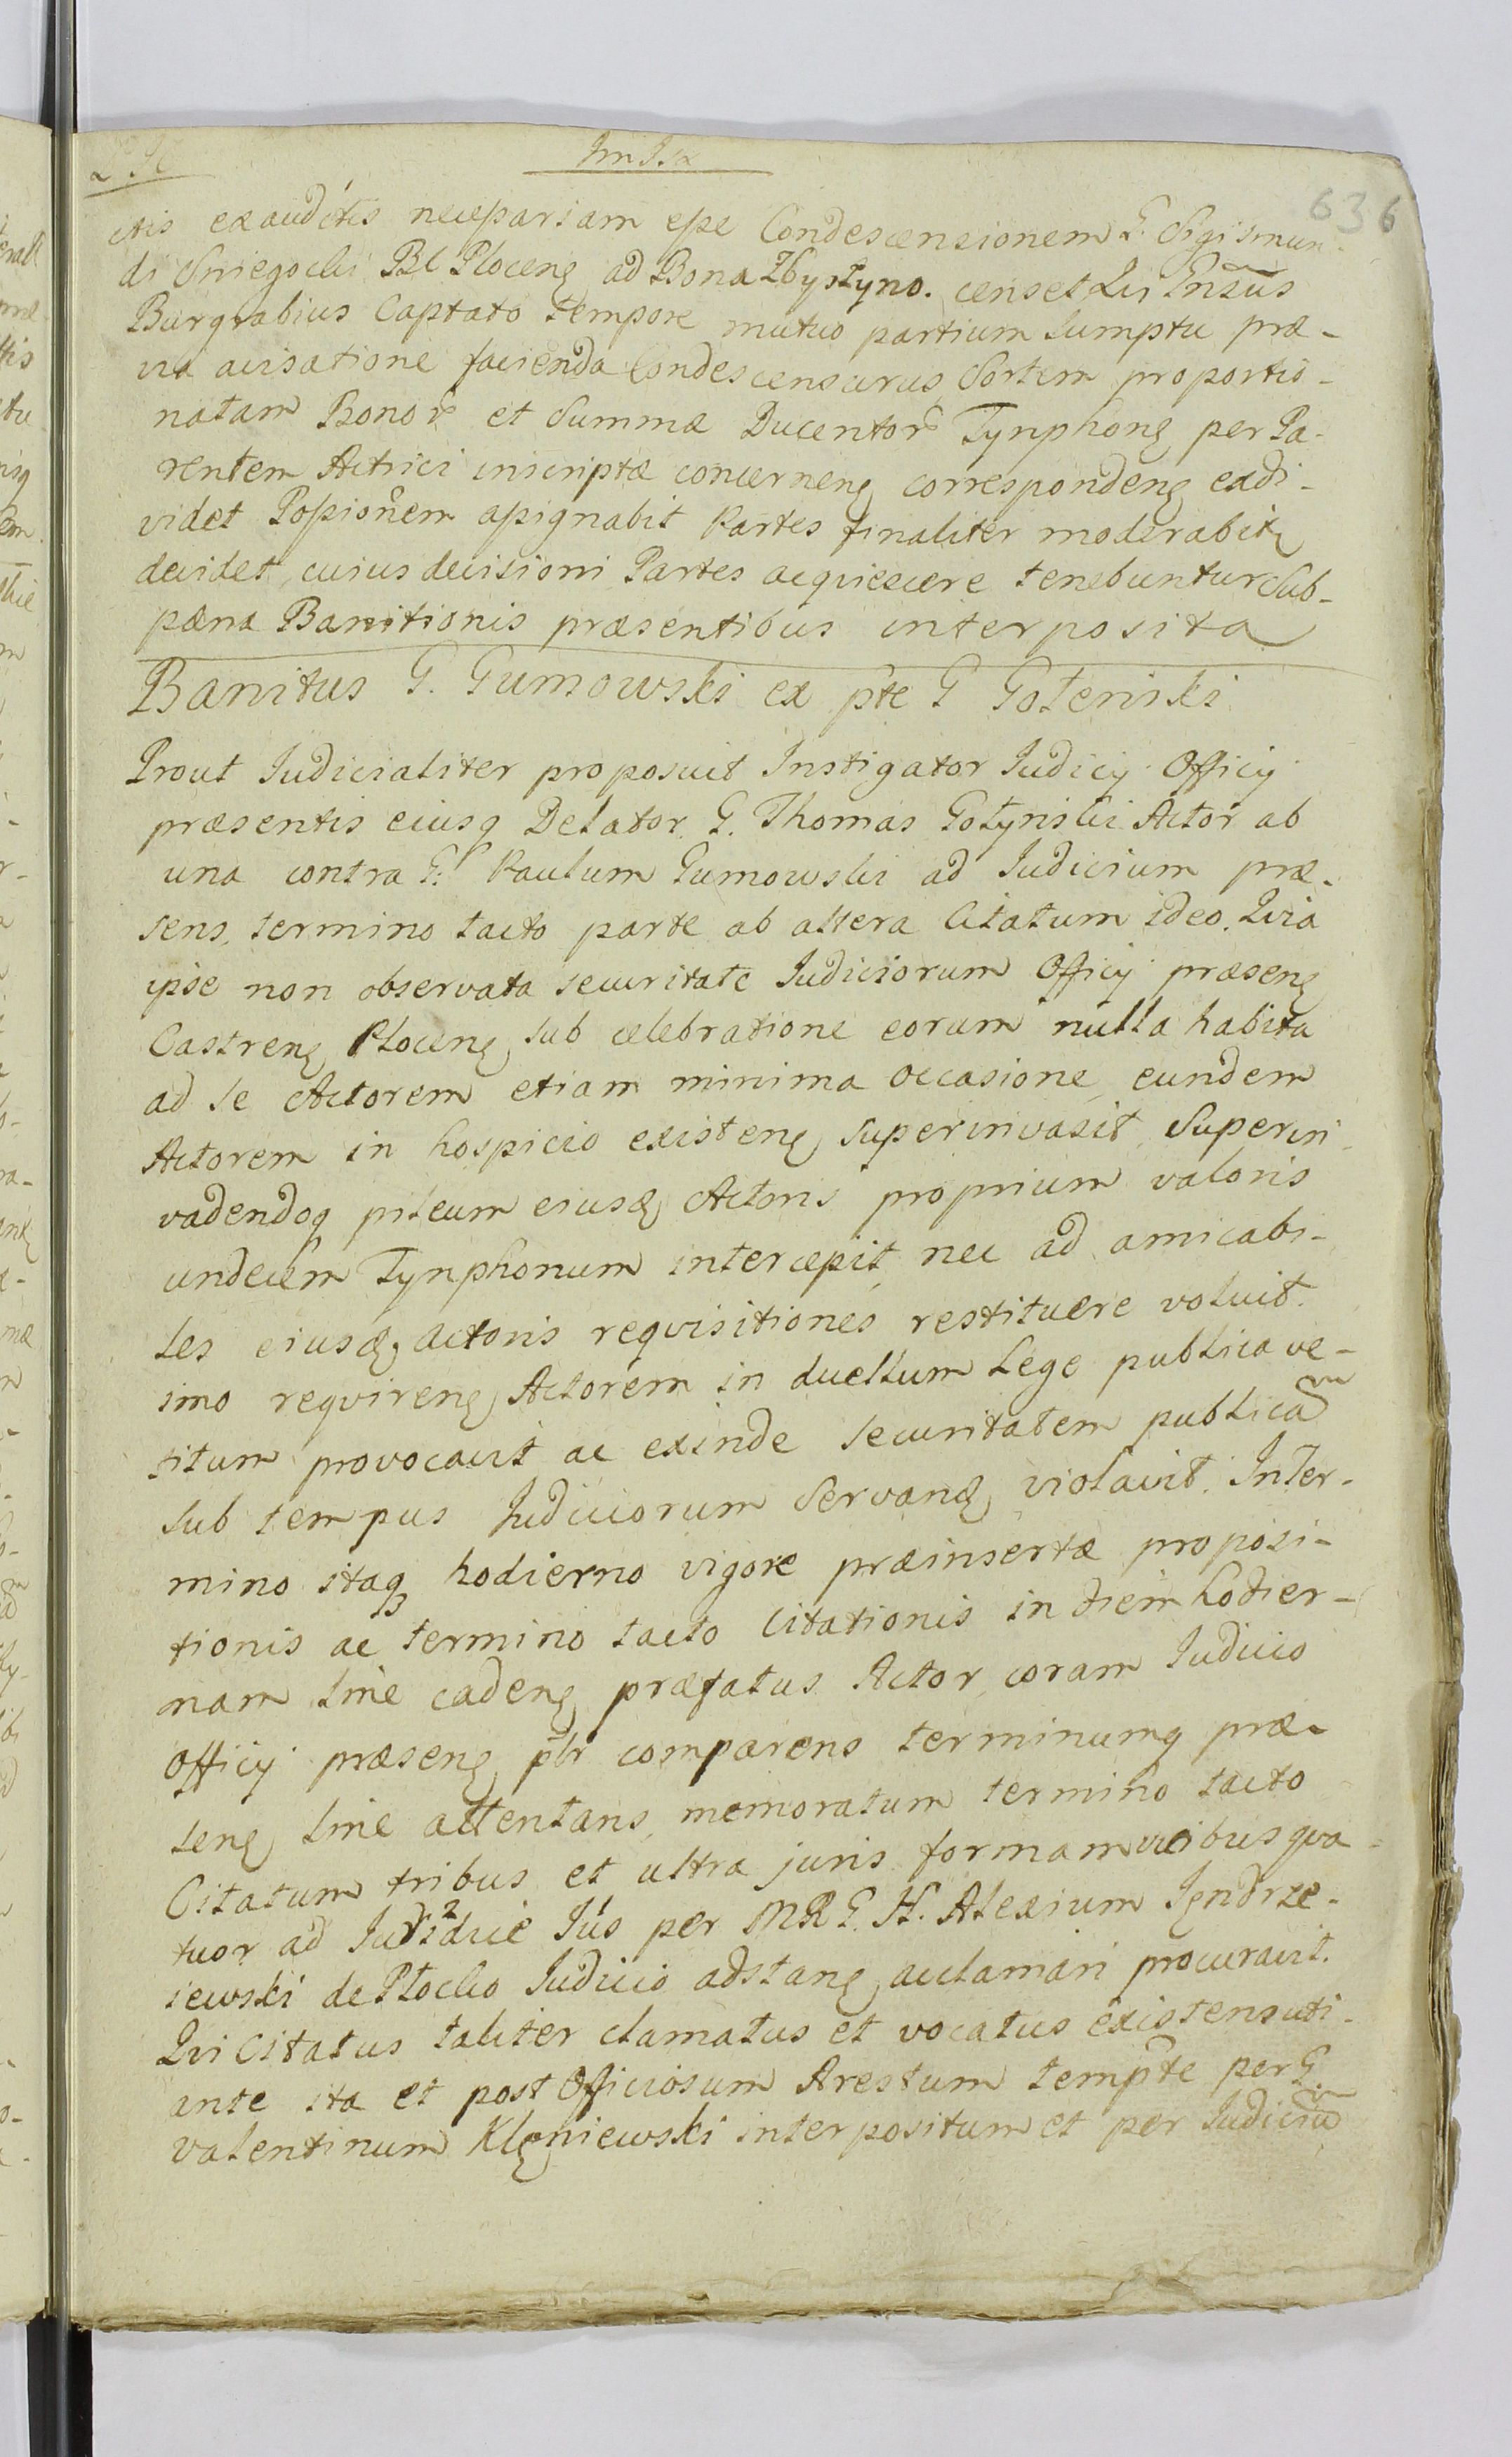 636
ctis exauditis necessariam esse Condescensionem G. Sigismun-
di Sniegocki BC Plocens ad Bona Zbyszyno. censet Qui Gnsus
Burgrabius Captato tempore mutuo partium sumptu præ-
via avisatione facienda Condescensurus Sortem proportio-
natam Bonor et Summæ Ducentor Tynphons per Pa-
rentem Actrici inscriptæ concernens correspondens exdi-
videt Possionem assignabit Partes finaliter moderabit
decidet, cuius decisioni Partes acquiescere tenebuntur Sub
pæna Banitionis præsentibus interposita
Banitus G. Gumowski ex pte G Golenski
Prout Judicialiter proposuit Instigator Judicij Officij
præsentis eiusq Delator G. Thomas Golynski Actor ab
una contra G. Paulum Gumowski ad Judicium præ-
sens, termino tacto parte ab altera Citatum ideo. Quia
ipse non observata securitate Judiciorum Officij præsens
Castrens Plocens, sub celebratione eorum nulla habita
ad se Actorem etiam minima occasione eundem
Actorem in hospicio existens superinvasit, superin-
vadendoq pileum eiusd Actoris proprium valoris
undecem Tynphonum intercepit, nec ad amicabi-
les eiusd actoris reqvisitiones restituere voluit.
imo reqvirens Actorem in duellum Lege publica ve-
titum provocavit ac exinde securitatem publicam
sub tempus Judiciorum Servand violavit. In Ter-
mino itaq hodierno vigore præinsertæ proposi-
tionis ac termino tacto Citationis in diem hodier-
nam lme cadens præfatus Actor coram Judicio
Officij præsens pltr comparens terminumq præ-
sens lme attentans, memoratum termino tacto
Citatum tribus et ultra juris formam vicibus qva-
tuor ad Jurisdice Jus per MR G. H. Alexium Jendrze-
iewski de Plocko Judicio adstans acclamari procuravit.
Qvi Citatus taliter clamatus et vocatus existens uti
ante ita et post Officiosum Arestum tempte per G
Valentinum Kleniewski interpositum et per Judiciu